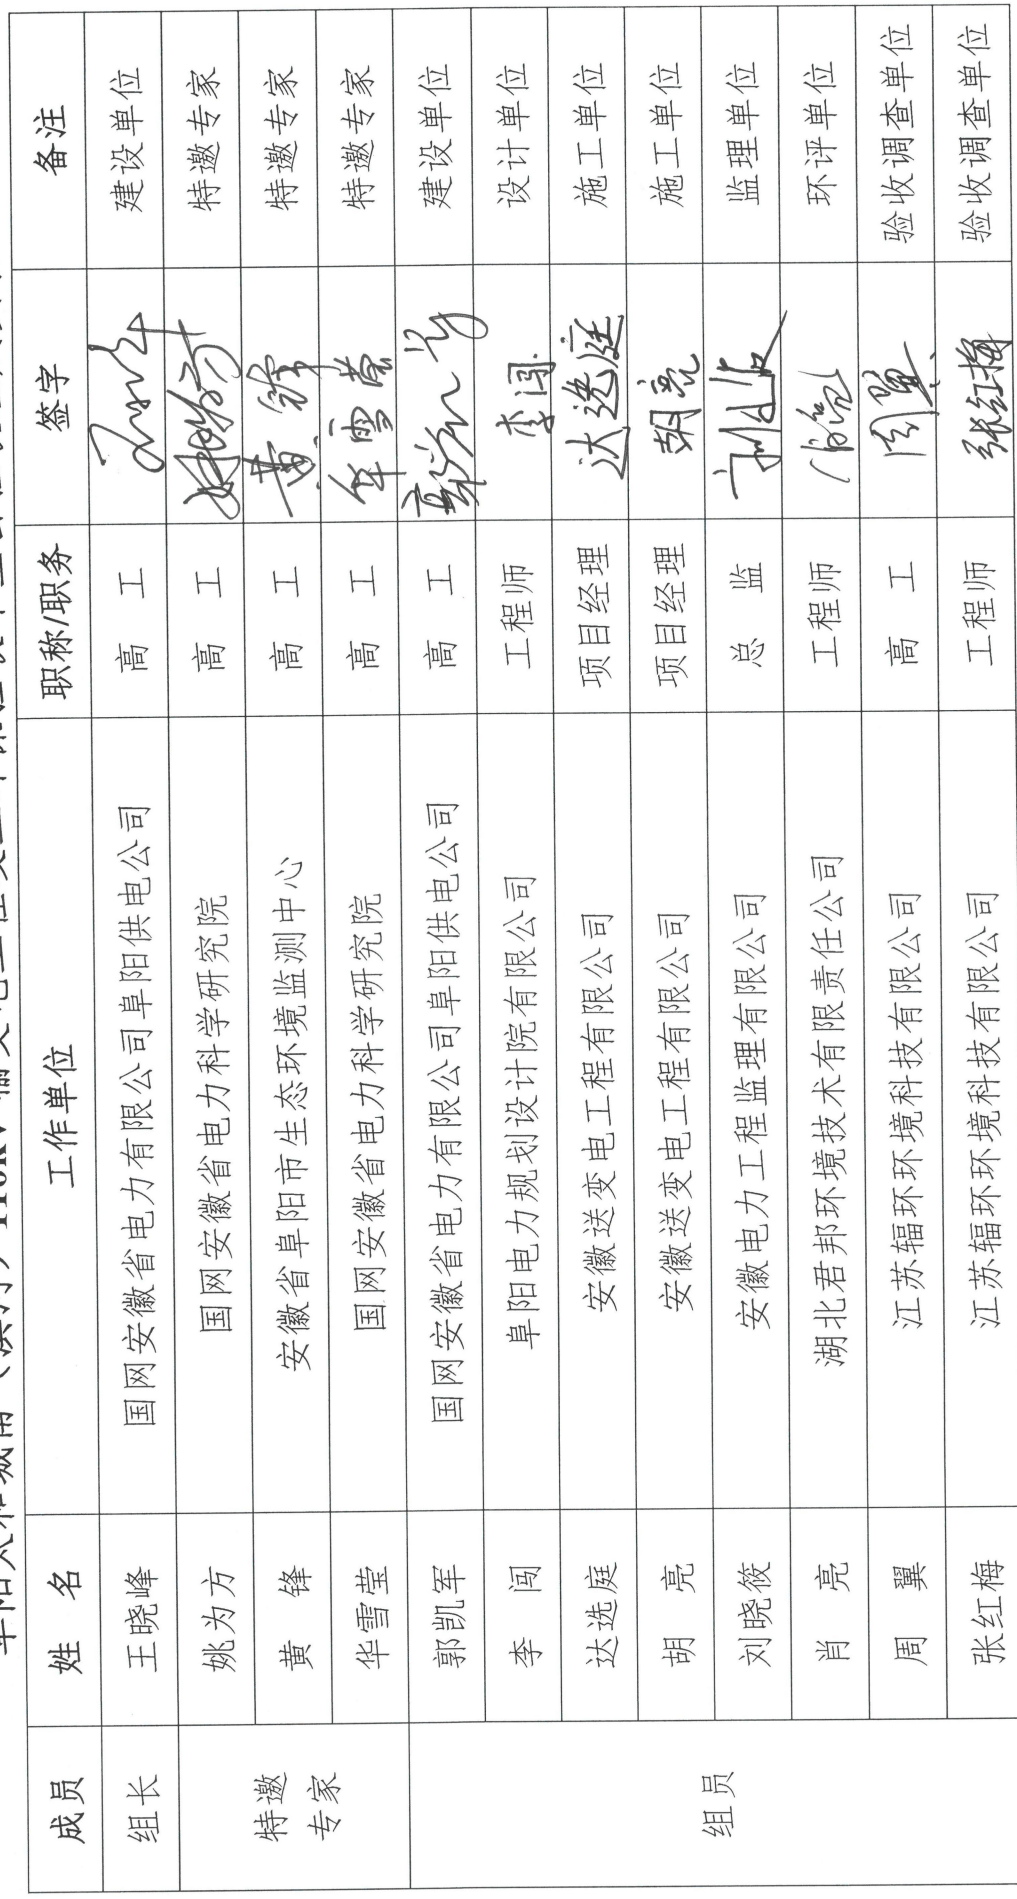 成员 姓 名 工作单位 职称/职务 签字 备注
组长 王晓峰 国网安徽省电力有限公司阜阳供电公司 高 工 建设单位
特邀
专家
姚为方 国网安徽省电力科学研究院 高 工 姚为方 特邀专家
黄 锋 安徽省阜阳市生态环境监测中心 高 工 黄锋 特邀专家
华雪莹 国网安徽省电力科学研究院 高 工 华雪莹 特邀专家
组员
郭凯军 国网安徽省电力有限公司阜阳供电公司 高 工 建设单位
李 闯 阜阳电力规划设计院有限公司 工程师 李闯 设计单位
达选庭 安徽送变电工程有限公司 项目经理 达选庭 施工单位
胡 亮 安徽送变电工程有限公司 项目经理 胡亮 施工单位
刘晓筱 安徽电力工程监理有限公司 总 监 监理单位
肖 亮 湖北君邦环境技术有限责任公司 工程师 肖亮 环评单位
周 翼 江苏辐环环境科技有限公司 高 工 周翼 验收调查单位
张红梅 江苏辐环环境科技有限公司 工程师 张红梅 验收调查单位